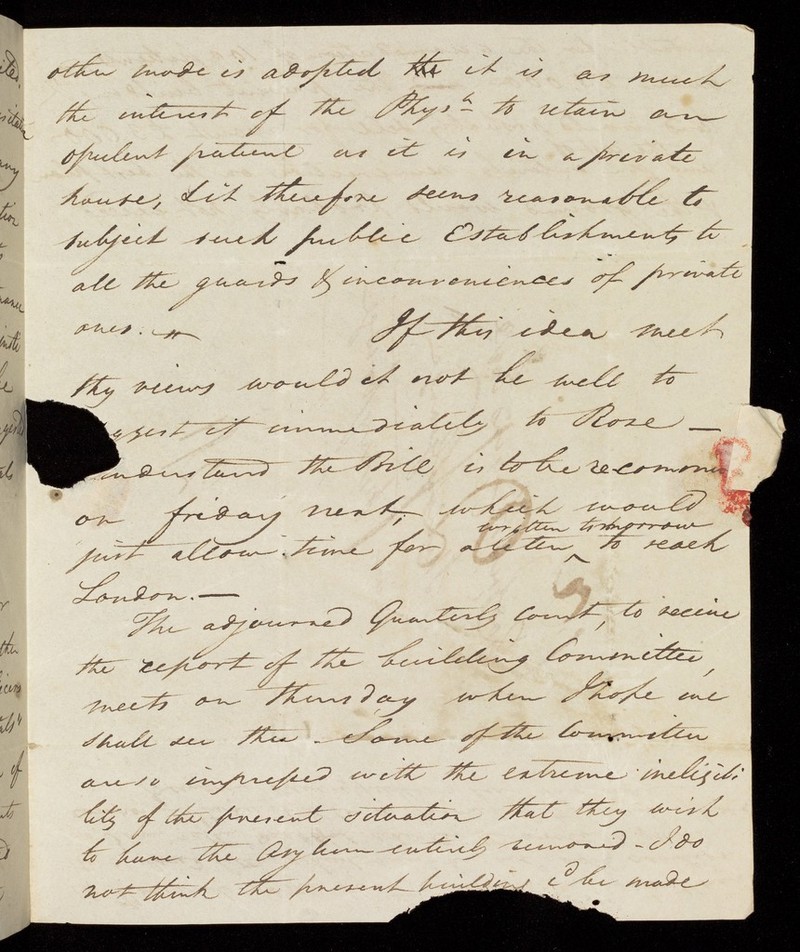 other mode is adopted it is as much
the interest of the Physn to retain an
opulent patient as it is in a private
house, & it therefore seems reasonable to
subject such public Establishments to
all the guards & inconveniences of private
ones. — If this idea meet
thy views would it not be well to
ggest it immediately to Rose —
understand the Bill is to be recommi
on friday next, which would
written tomorrow
just allow time for a letter ^ to reach
London. —
The adjourned Quarterly Court, to receive
the report of the building Committee,
meets on Thursday when I hope we
shall see thee. Some of the Committee
are so impressed with the extreme ineligibi
lity of the present situation that they wish
to have the Asylum entirely removed - I do
not think the present building cd be made